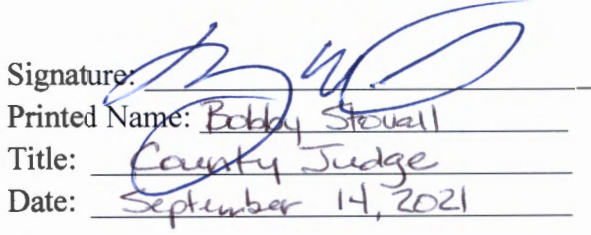 Signature:
Printed Name: Bobby Stovall
Title: County Judge
Date: September 14, 2021